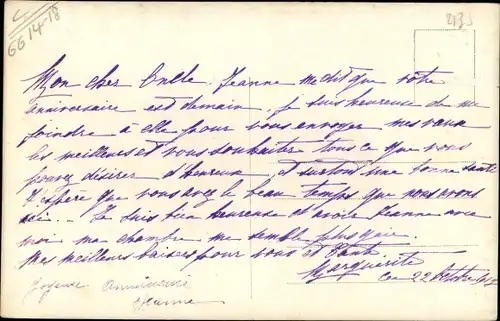 66 14-18
Mon cher Oncle. Jeanne me dit que votre
anniversaire est demain, je suis heureuse de me
joindre à elle pour vous envoyer mes vœux
les meilleurs et vous souhaiter tous ce que vous
pouvez désirer d'heureux et surtout une bonne santé
J'espère que vous avez le beau temps que nous avons
ici... Je suis bien heureuse d'avoir Jeanne avec
moi ma chambre me semble plus gaie.
Mes meilleurs baisers pour vous et Tante
Marguerite
Ce 22 Octobre
Joyeux Anniversaire
Jeanne